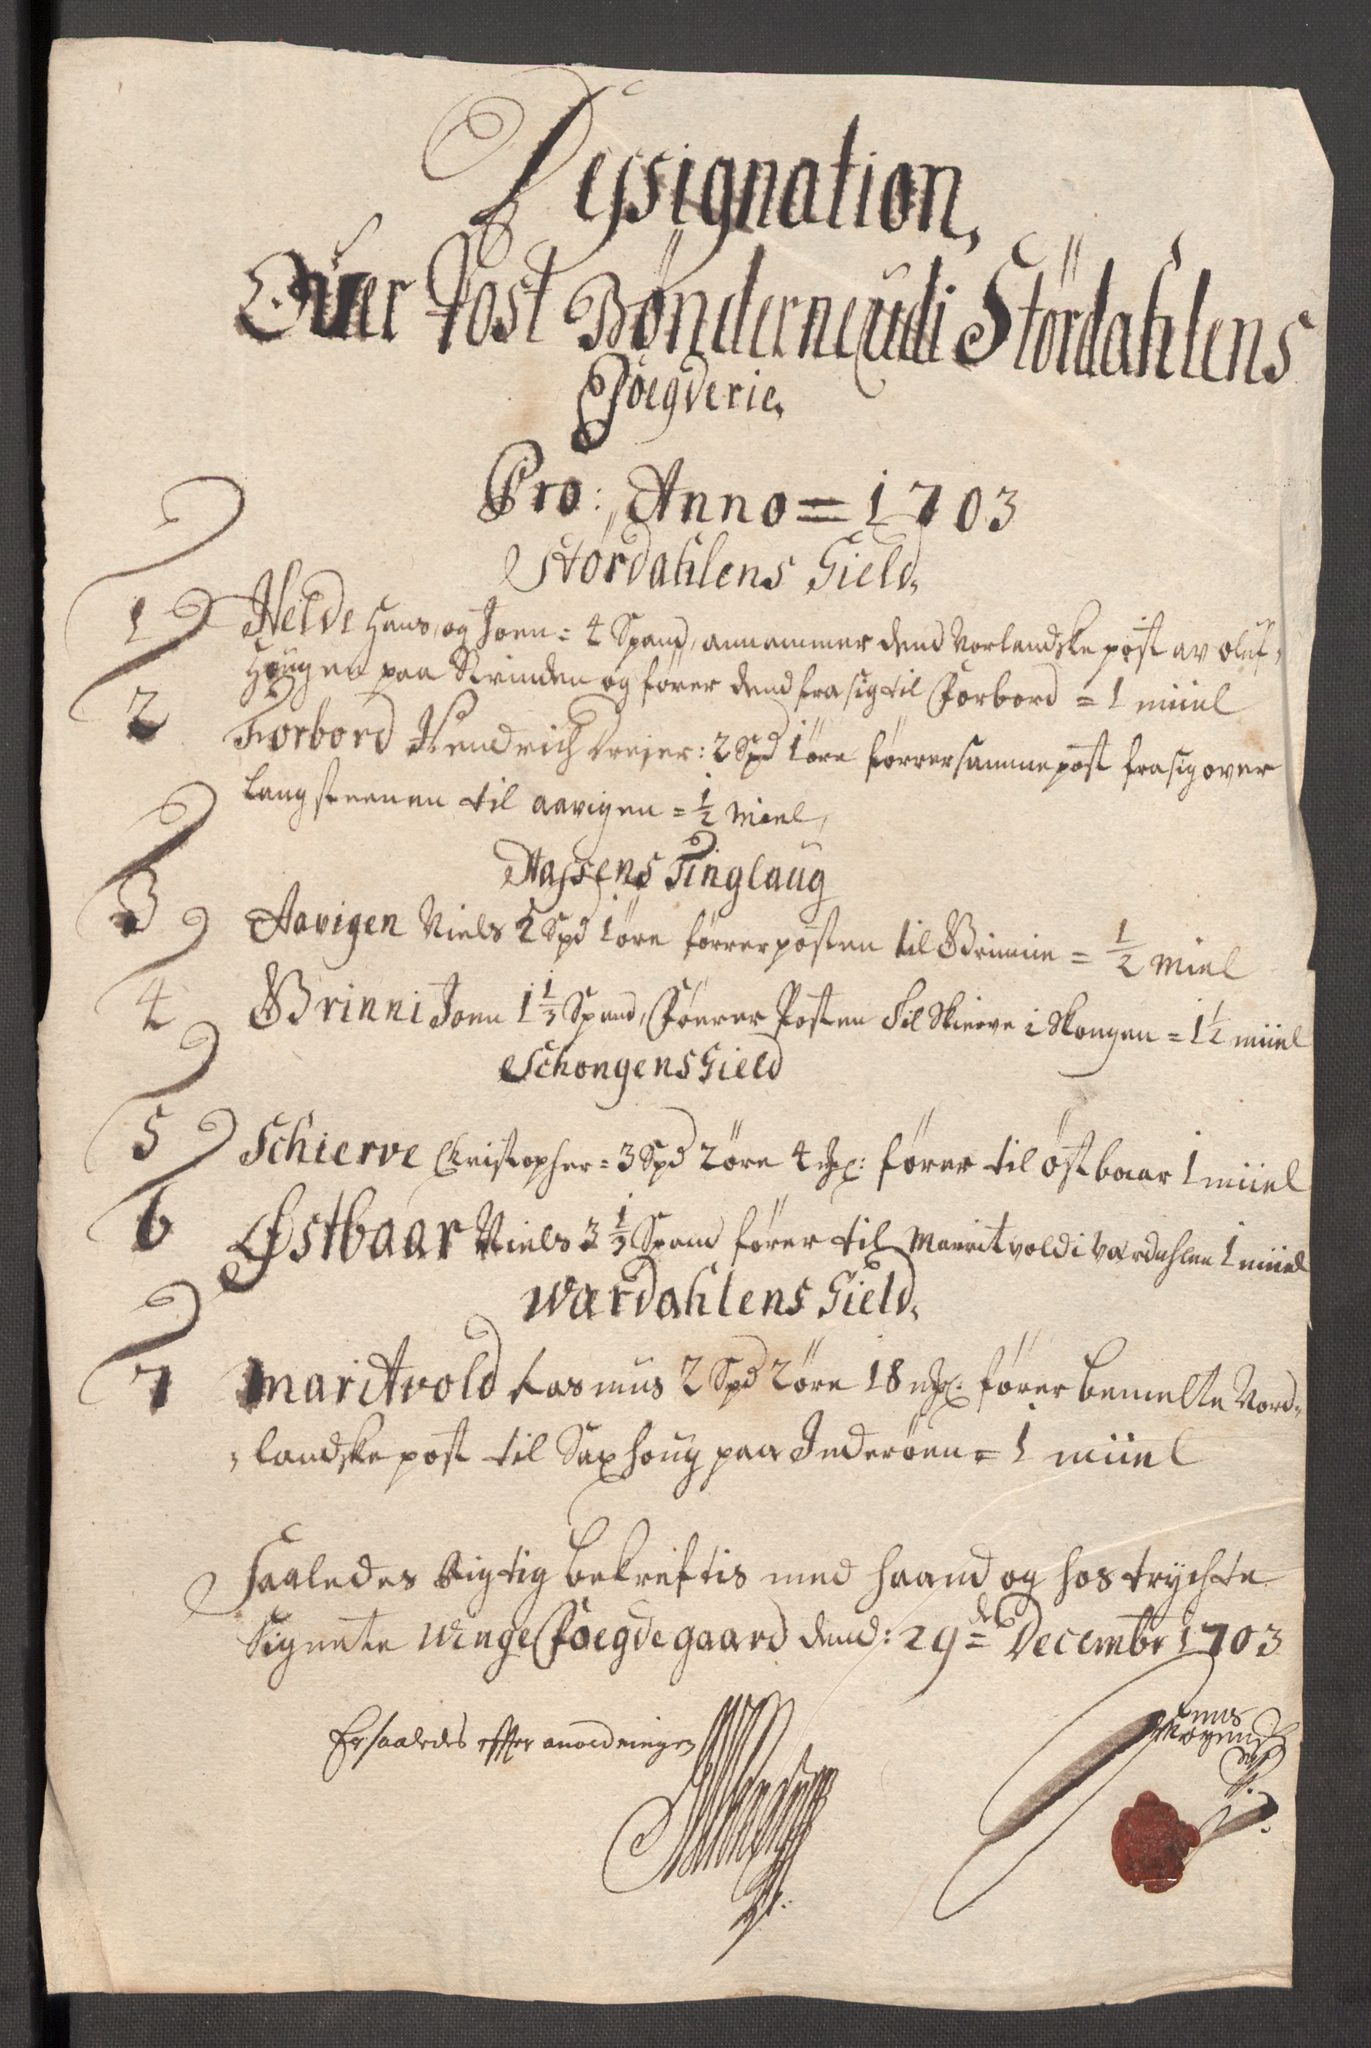 Dessignation,
Ofuer Post Bønderne udi Størdahlens
Foegderie,
Pro: Anno = 1703
Størdahlens Gield,
1 Helde Hans, og Joen = 4 Spand, annammer dend Norlandske post av oluf
Hougen paa Qvinden og fører dend fra sig til Forbord = 1 miiel
2 Forbord Hendrich Dreier: 2 Spd 1 öre förrer samme post fra sig over
Langsteenen til aavigen = ½ Miel,
Aassens Tinglaug
3 Aavigen Niels 2 Spd 1 öre förrer posten til Brinnie = ½ Miel
4 Brinni Joen 1⅓ Spand, Föerer Posten til Skierve i Skongen = 1½ miiel
Schongens Gield
5 Schierve Christopher = 3 Spd 2 öre 4 mk: förer til östbaar 1 miiel
6 Østbaar Niels 3⅓ Spand förer til Maritvold i Værdahlen 1 miiel
Wærdahlens Gield,
7 Maritvold Rasmus 2 Spd 2 öre 18 mk: förer bemelte Nord-
landske post til Saxhoug paa Inderöen = 1 miiel
Saaledes Rigtig bekreftis med haand og hos trychte
Signete Winge Foegdegaard dend: 29de Decembr 1703
Er saaledes effter anordningen